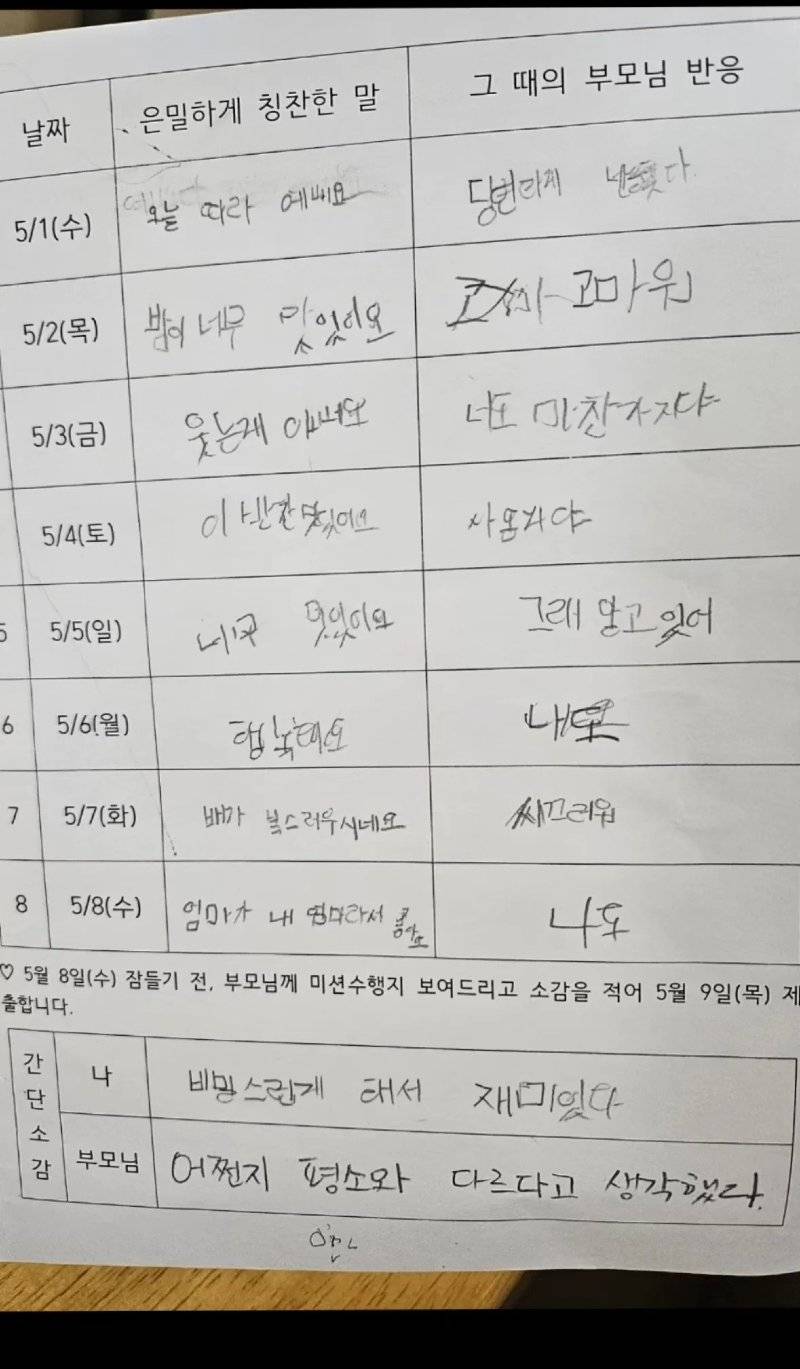 날짜 은밀하게 칭찬한 말 그 때의 부모님 반응
5/1(수) 오늘 따라 예뻐요 당현하게
5/2(목) 밥이 너무 맛있어요 고마워
5/3(금) 웃는게 너도 마찬가지야
5/4(토) 이
5/5(일) 너무 맛있어요 그래 알고 있어
6 5/6(월) 행복해요 나도
7 5/7(화) 배가 복스러우시네요 씨끄러워
8 5/8(수) 엄마가 내 엄마라서 좋아요 나도
♡ 5월 8일(수) 잠들기 전, 부모님께 미션수행지 보여드리고 소감을 적어 5월 9일(목) 제
출합니다.
간단소감
나 비밀스럽게 해서 재미있다
부모님 어쩐지 평소와 다르다고 생각했다.